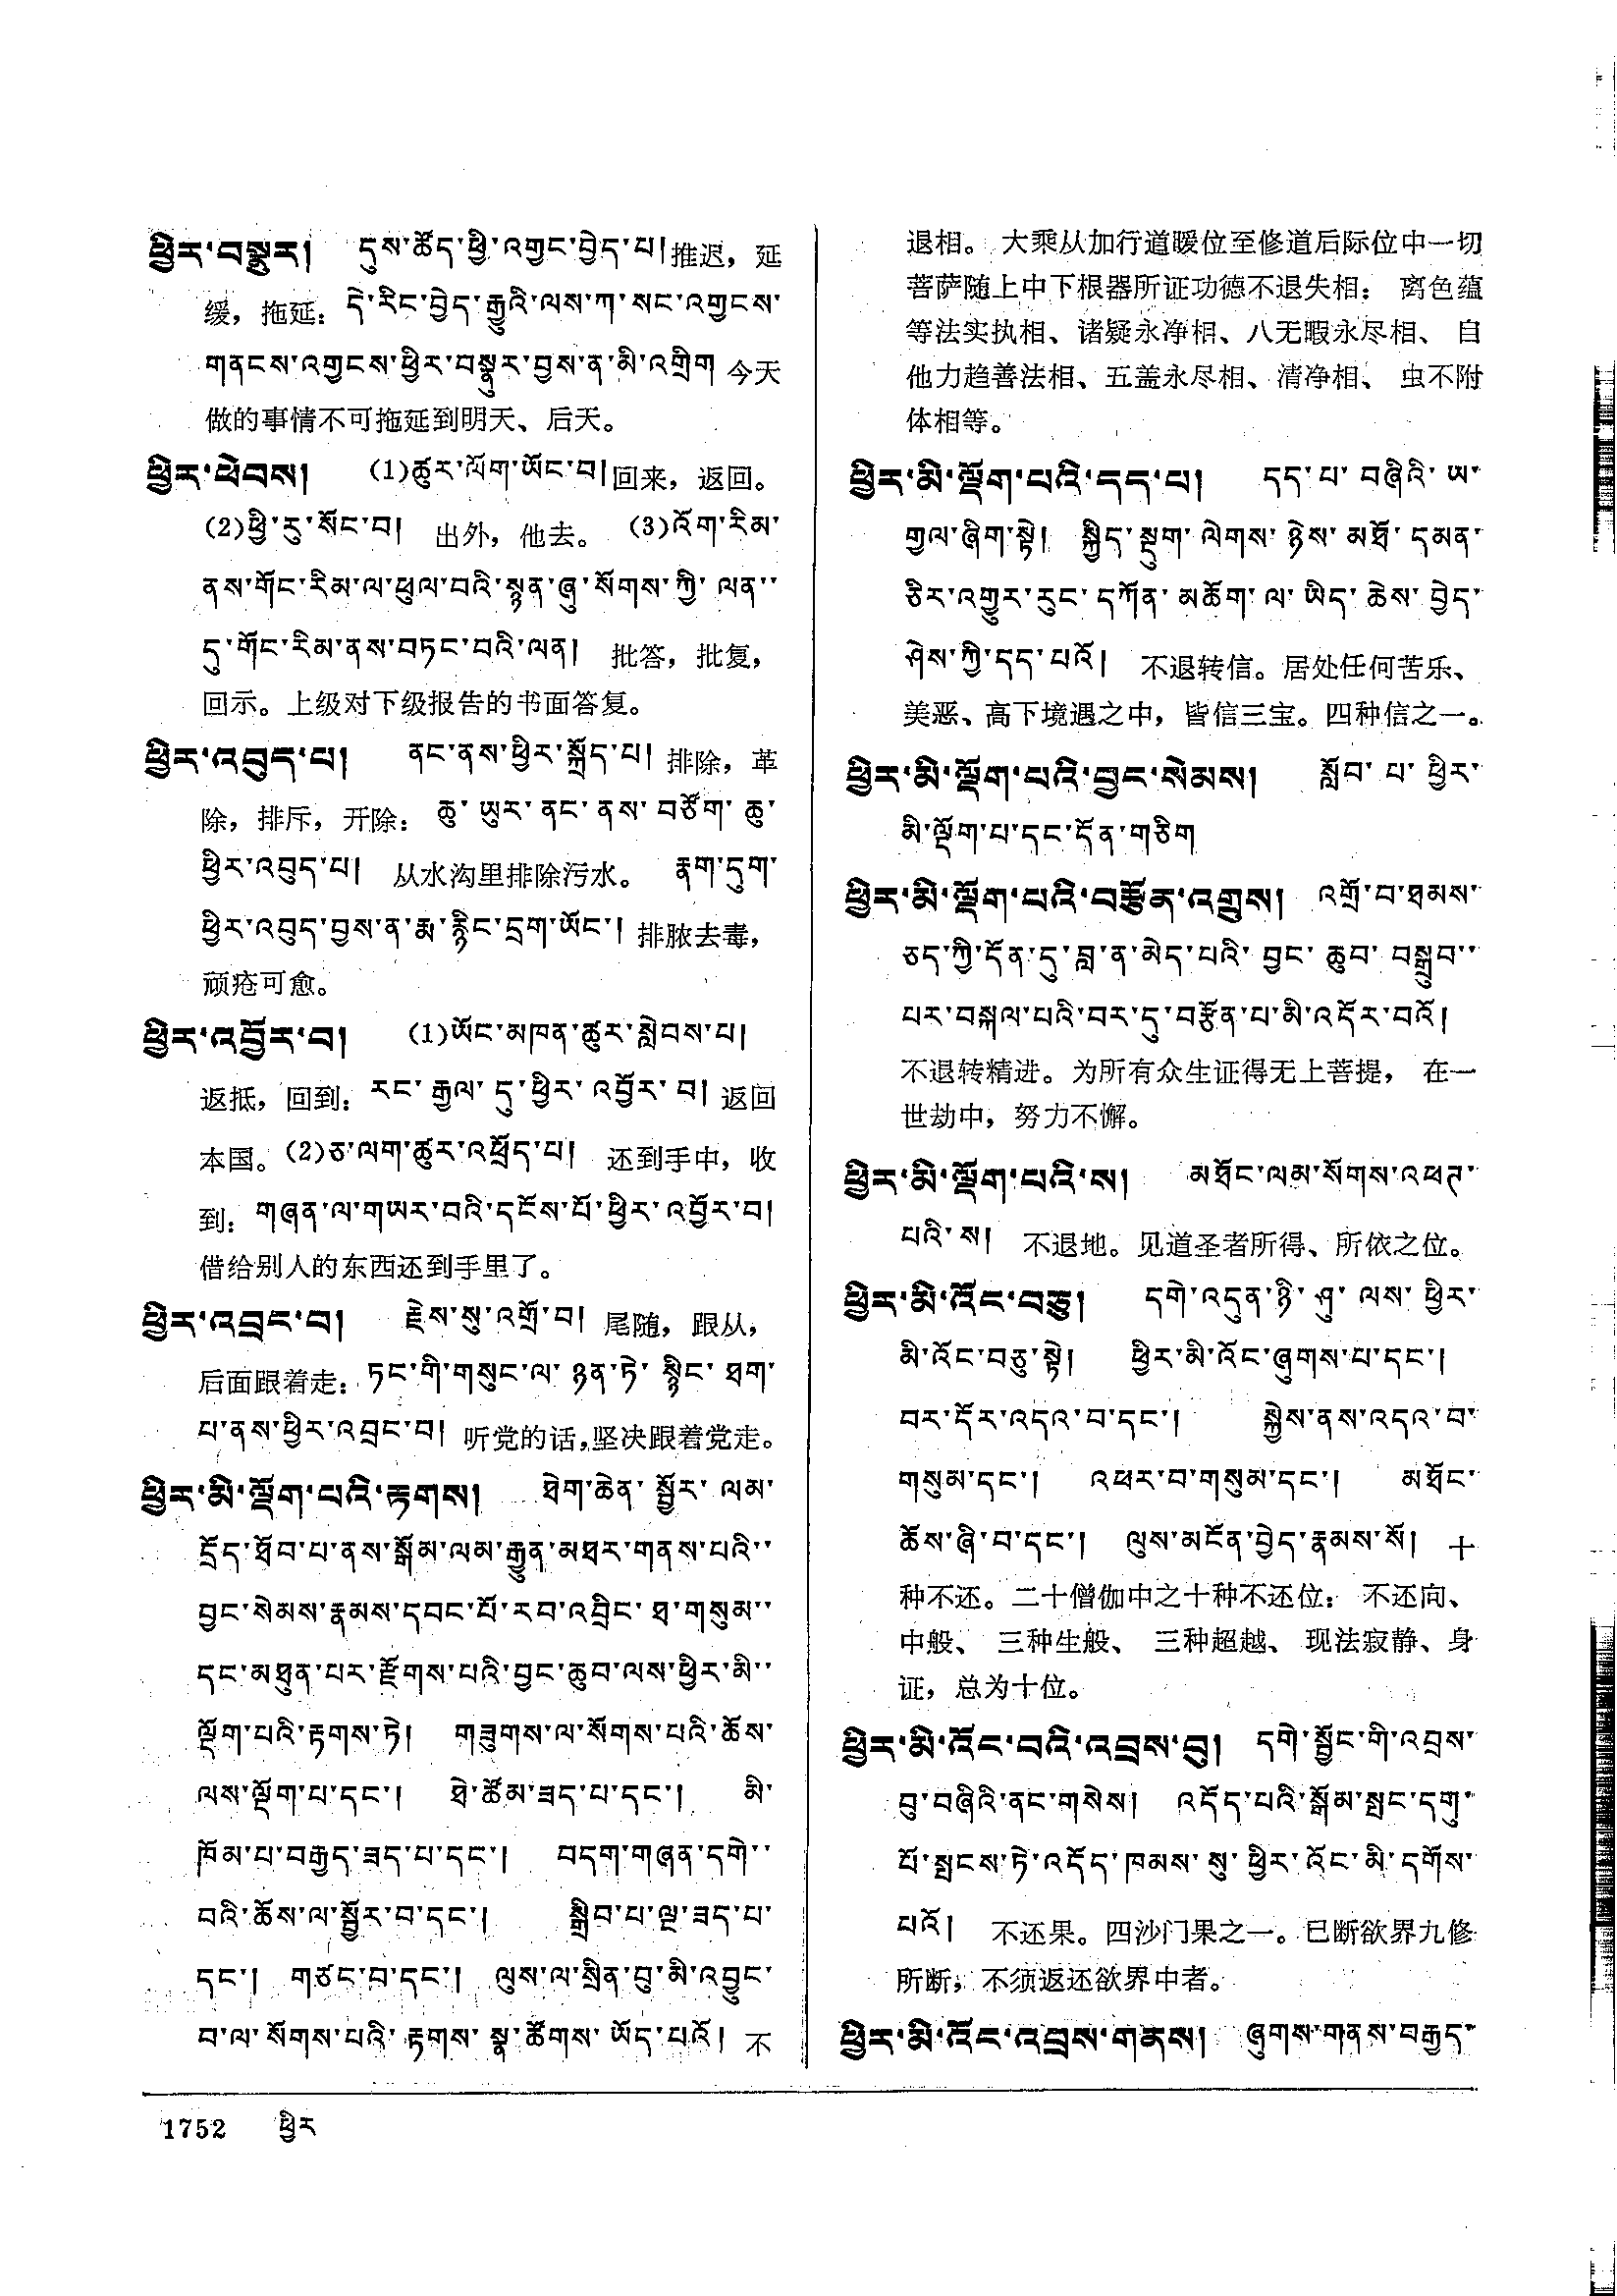 ཕྱིར་བསྣུར། དུས་ཚོད་ཕྱི་འགྱང་བྱེད་པ།推迟，延
缓，拖延：དེ་རིང་བྱེད་རྒྱུའི་ལས་ཀ་སང་འགྱངས་
གནངས་འགྱངས་ཕྱིར་བསྣུར་བྱས་ན་མི་འགྲིག 今天
做的事情不可拖延到明天、后天。
ཕྱིར་ཕེབས། (1)ཚུར་ལོག་ཡོང་བ།回来，返回。
(2)ཕྱི་རུ་སོང་བ། 出外，他去。 (3)འོག་རིམ་
ནས་གོང་རིམ་ལ་ཕུལ་བའི་སྙན་ཞུ་སོགས་ཀྱི་ ལན་་
དུ་གོང་རིམ་ནས་བཏང་བའི་ལན། 批答，批复，
回示。上级对下级报告的书面答复。
ཕྱིར་འབུད་པ། ནང་ནས་ཕྱིར་སྐྲོད་པ། 排除，革
除，排斥，开除： ཆུ་ ཡུར་ ནང་ ནས་ བཙོག་ ཆུ་
ཕྱིར་འབུད་པ། 从水沟里排除污水。 རྣག་དུག་
ཕྱིར་འབུད་བྱས་ན་རྨ་རྙིང་དྲག་ཡོང་། 排脓去毒，
顽疮可愈。
ཕྱིར་འབྱོར་བ། (1)ཡོང་མཁན་ཚུར་སླེབས་པ།
返抵，回到：རང་ རྒྱལ་ དུ་ ཕྱིར་ འབྱོར་ བ། 返回
本国。(2)ཅ་ལག་ཚུར་འཕྲོད་པ། 还到手中，收
到：གཞན་ལ་གཡར་བའི་དངོས་པོ་ཕྱིར་འབྱོར་བ།
借给别人的东西还到手里了。
ཕྱིར་འབྲང་བ། རྗེས་སུ་འགྲོ་བ། 尾随，跟从，
后面跟着走：ཏང་གི་གསུང་ལ་ ཉན་ཏེ་ སྙིང་ ཐག་
པ་ནས་ཕྱིར་འབྲང་བ། 听党的话，坚决跟着党走。
ཕྱིར་མི་ལྡོག་པའི་རྟགས། ཐེག་ཆེན་ སྦྱོར་ ལམ་
དྲོད་ཐོབ་པ་ནས་སྒོམ་ལམ་རྒྱུན་མཐར་གནས་པའི་་
བྱང་སེམས་རྣམས་དབང་པོ་རབ་འབྲིང་ ཐ་གསུམ་་
དང་མཐུན་པར་རྫོགས་པའི་བྱང་ཆུབ་ལས་ཕྱིར་མི་་
ལྡོག་པའི་རྟགས་ཏེ། གཟུགས་ལ་སོགས་པའི་ཆོས་
ལས་ལྡོག་པ་དང་། ཐེ་ཚོམ་ཟད་པ་དང་། མི་
ཁོམ་པ་བརྒྱད་ཟད་པ་དང་། བདག་གཞན་དགེ་་
བའི་ཆོས་ལ་སྦྱོར་བ་དང་། སྒྲིབ་པ་ལྔ་ཟད་པ་
དང་། གཙང་བ་དང་། ལུས་ལ་སྲིན་བུ་མི་འབྱུང་
བ་ལ་ སོགས་པའི་ རྟགས་ སྣ་ཚོགས་ ཡོད་པའོ། 不
退相。大乘从加行道暖位至修道后际位中一切
菩萨随上中下根器所证功德不退失相： 离色蕴
等法实执相、诸疑永净相、八无暇永尽相、 自
他力趋善法相、五盖永尽相、清净相、 虫不附
体相等。
ཕྱིར་མི་ལྡོག་པའི་དད་པ། དད་པ་ བཞིའི་ ཡ་
གྱལ་ཞིག་སྟེ། སྐྱིད་སྡུག་ ལེགས་ ཉེས་ མཐོ་ དམན་
ཅིར་འགྱུར་རུང་ དཀོན་ མཆོག་ ལ་ ཡིད་ ཆེས་ བྱེད་
ཤེས་ཀྱི་དད་པའོ། 不退转信。居处任何苦乐、
美恶、高下境遇之中，皆信三宝。四种信之一。
ཕྱིར་མི་ལྡོག་པའི་བྱང་སེམས། སློབ་ པ་ ཕྱིར་
མི་ལྡོག་པ་དང་དོན་གཅིག
ཕྱིར་མི་ལྡོག་པའི་བརྩོན་འགྲུས། འགྲོ་བ་ཐམས་
ཅད་ཀྱི་དོན་དུ་བླ་ན་མེད་པའི་ བྱང་ ཆུབ་ བསྒྲུབ་་
པར་བསྐལ་པའི་བར་དུ་བརྩོན་པ་མི་འདོར་བའོ།
不退转精进。为所有众生证得无上菩提， 在一
世劫中，努力不懈。
ཕྱིར་མི་ལྡོག་པའི་ས། མཐོང་ལམ་སོགས་འཕཊ་
པའི་ས། 不退地。见道圣者所得、所依之位。
ཕྱིར་མི་འོང་བཅུ། དགེ་འདུན་ཉི་ ཤུ་ ལས་ ཕྱིར་
མི་འོང་བཅུ་སྟེ། ཕྱིར་མི་འོང་ཞུགས་པ་དང་།
བར་དོར་འདའ་བ་དང་། སྐྱེས་ནས་འདའ་བ་
གསུམ་དང་། འཕར་བ་གསུམ་དང་། མཐོང་
ཆོས་ཞི་བ་དང་། ལུས་མངོན་བྱེད་རྣམས་སོ། 十
种不还。二十僧伽中之十种不还位： 不还向、
中般、 三种生般、 三种超越、 现法寂静、身
证，总为十位。
ཕྱིར་མི་འོང་བའི་འབྲས་བུ། དགེ་སྦྱོང་གི་འབྲས་
བུ་བཞིའི་ནང་གསེས། འདོད་པའི་སྒོམ་སྤང་དགུ་
པོ་སྤངས་ཏེ་འདོད་ཁམས་ སུ་ ཕྱིར་ འོང་ མི་ དགོས་
པའོ། 不还果。四沙门果之一。已断欲界九修
所断，不须返还欲界中者。
ཕྱིར་མི་འོང་འབྲས་གནས། ཞུགས་གནས་བརྒྱད་
1752 ཕྱིར